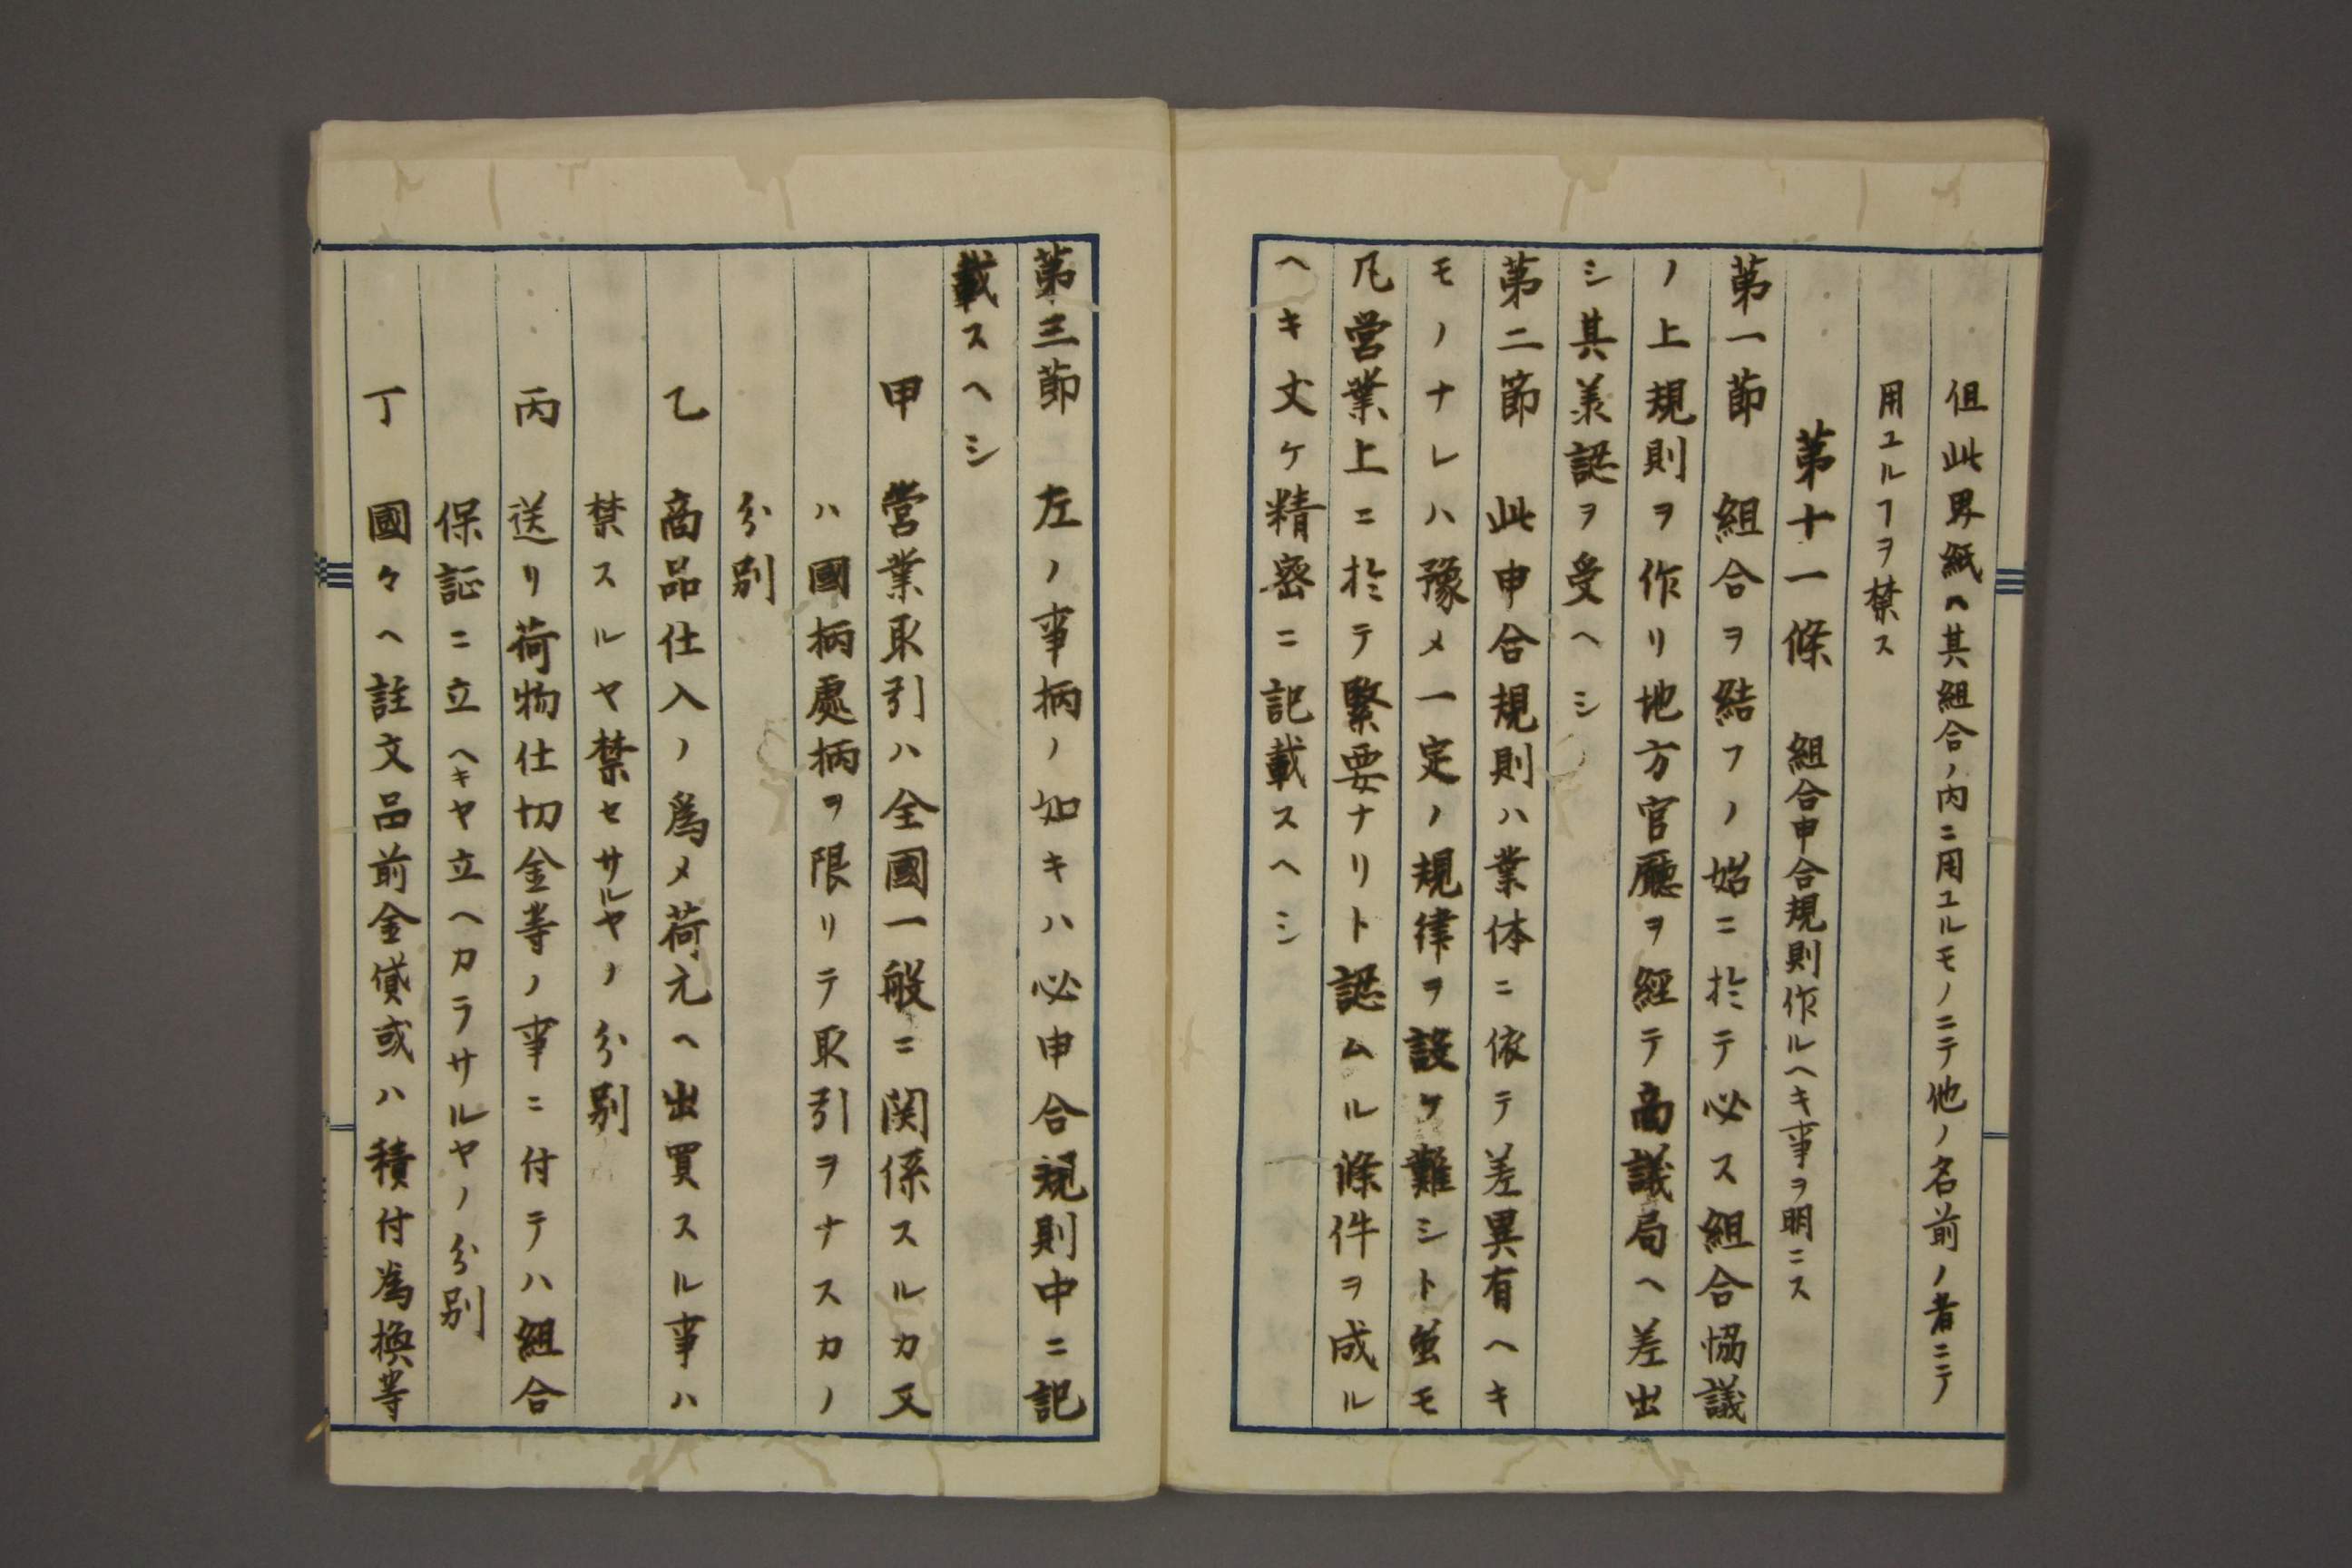 但此界紙ハ其組合ノ内ニ用ユルモノニテ他ノ名前ノ者ニテ
用ユルヿヲ禁ス
第十一條 組合申合規則作ルヘキ事ヲ明ニス
第一節 組合ヲ結フノ始ニ於テ必ス組合協議
ノ上規則ヲ作リ地方官廳ヲ經テ商議局ヘ差出
シ其羕認ヲ受ヘシ
第二節 此申合規則ハ業体ニ依テ差異有ヘキ
モノナレハ豫メ一定ノ規律ヲ設ケ難シト虽モ
凡営業上ニ於テ緊要ナリト認ムル條件ヲ成ル
ヘキ丈ケ精密ニ記載スヘシ
第三節 左ノ事柄ノ如キハ必申合規則中ニ記
載スヘシ
甲 営業取引ハ全國一般ニ関係スルカ又
ハ國柄處柄ヲ限リテ取引ヲナスカノ
分別
乙 商品仕入ノ爲メ荷元ヘ出買スル事ハ
禁スルヤ禁セサルヤノ分別
丙 送リ荷物仕切金等ノ事ニ付テハ組合
保証ニ立ヘキヤ立ヘカラサルヤノ分別
丁 國々ヘ註文品前金貸或ハ積付為換等